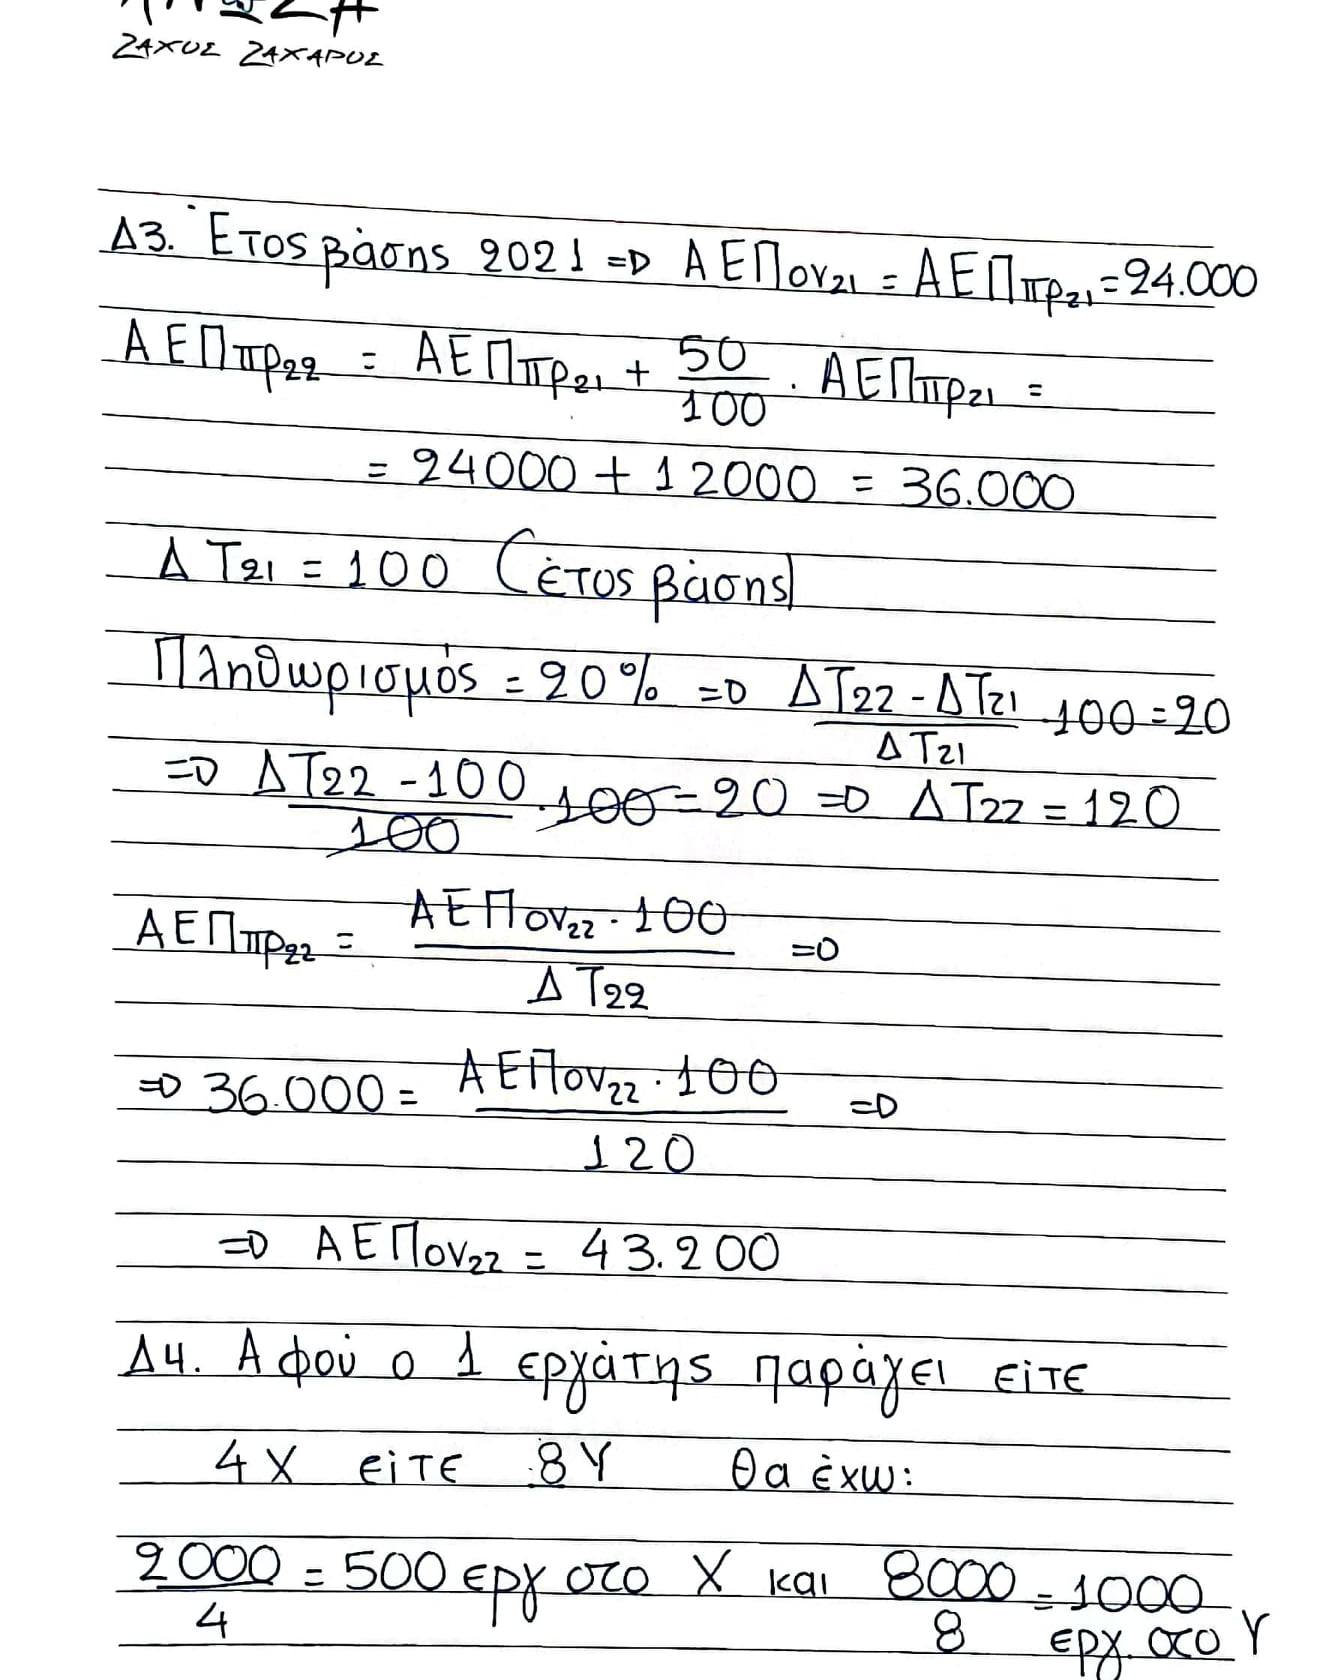 ΖΑΧΟΣ ΖΑΧΑΡΟΣ
Δ3. Έτος βάσης 2021 => ΑΕΠον21 = ΑΕΠπρ21 = 24.000
ΑΕΠπρ22 = ΑΕΠπρ21 + 50/100 · ΑΕΠπρ21 =
= 24000 + 12000 = 36.000
ΔΤ21 = 100 (έτος βάσης)
Πληθωρισμός = 20% => ΔΤ22 - ΔΤ21/ΔΤ21 · 100 = 20
=> ΔΤ22 - 100/100 · 100 = 20 => ΔΤ22 = 120
ΑΕΠπρ22 = ΑΕΠον22 · 100/ΔΤ22 =>
=> 36.000 = ΑΕΠον22 · 100/120 =>
=> ΑΕΠον22 = 43.200
Δ4. Αφού ο 1 εργάτης παράγει είτε
4Χ είτε 8Υ θα έχω:
2000/4 = 500 εργ στο Χ και 8000/8 = 1000 εργ. στο Υ